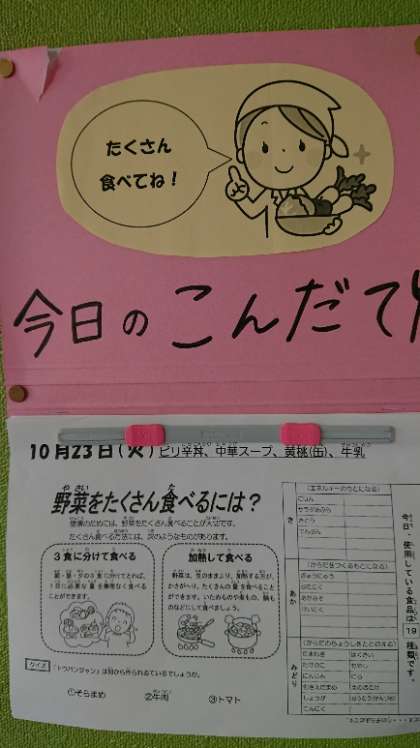 たくさん
食べてね！
今日のこんだて
10月23日(火) ピリ辛丼、中華スープ、黄桃(缶)、牛乳
野菜をたくさん食べるには？
健康のためには、野菜をたくさん食べることが大切です。
たくさん食べる方法には、次のようなものがあります。
3食に分けて食べる
朝・昼・夕の3食に分けてとれば、
1日に必要な量を無理なく食べる
ことができます。
加熱して食べる
野菜は、生のままより、加熱する方が、
かさがへり、たくさんの量を食べること
ができます。いためものや煮もの、鍋も
のなどにして食べましょう。
クイズ
「トウバンジャン」は何から作られているでしょうか。
①そらまめ ②牛肉 ③トマト
き
(エネルギーのもとになる)
ごはん
サラダあぶら
さとう
でんぷん
あか
(からだをつくるもとになる)
ぎゅうにゅう
みどり
(からだのちょうしをととのえる)
たまねぎ
はくさい
たけのこ
もやし
にんじん
にら
しょうが
にんにく
今日、使用している食品は
19
種類です。